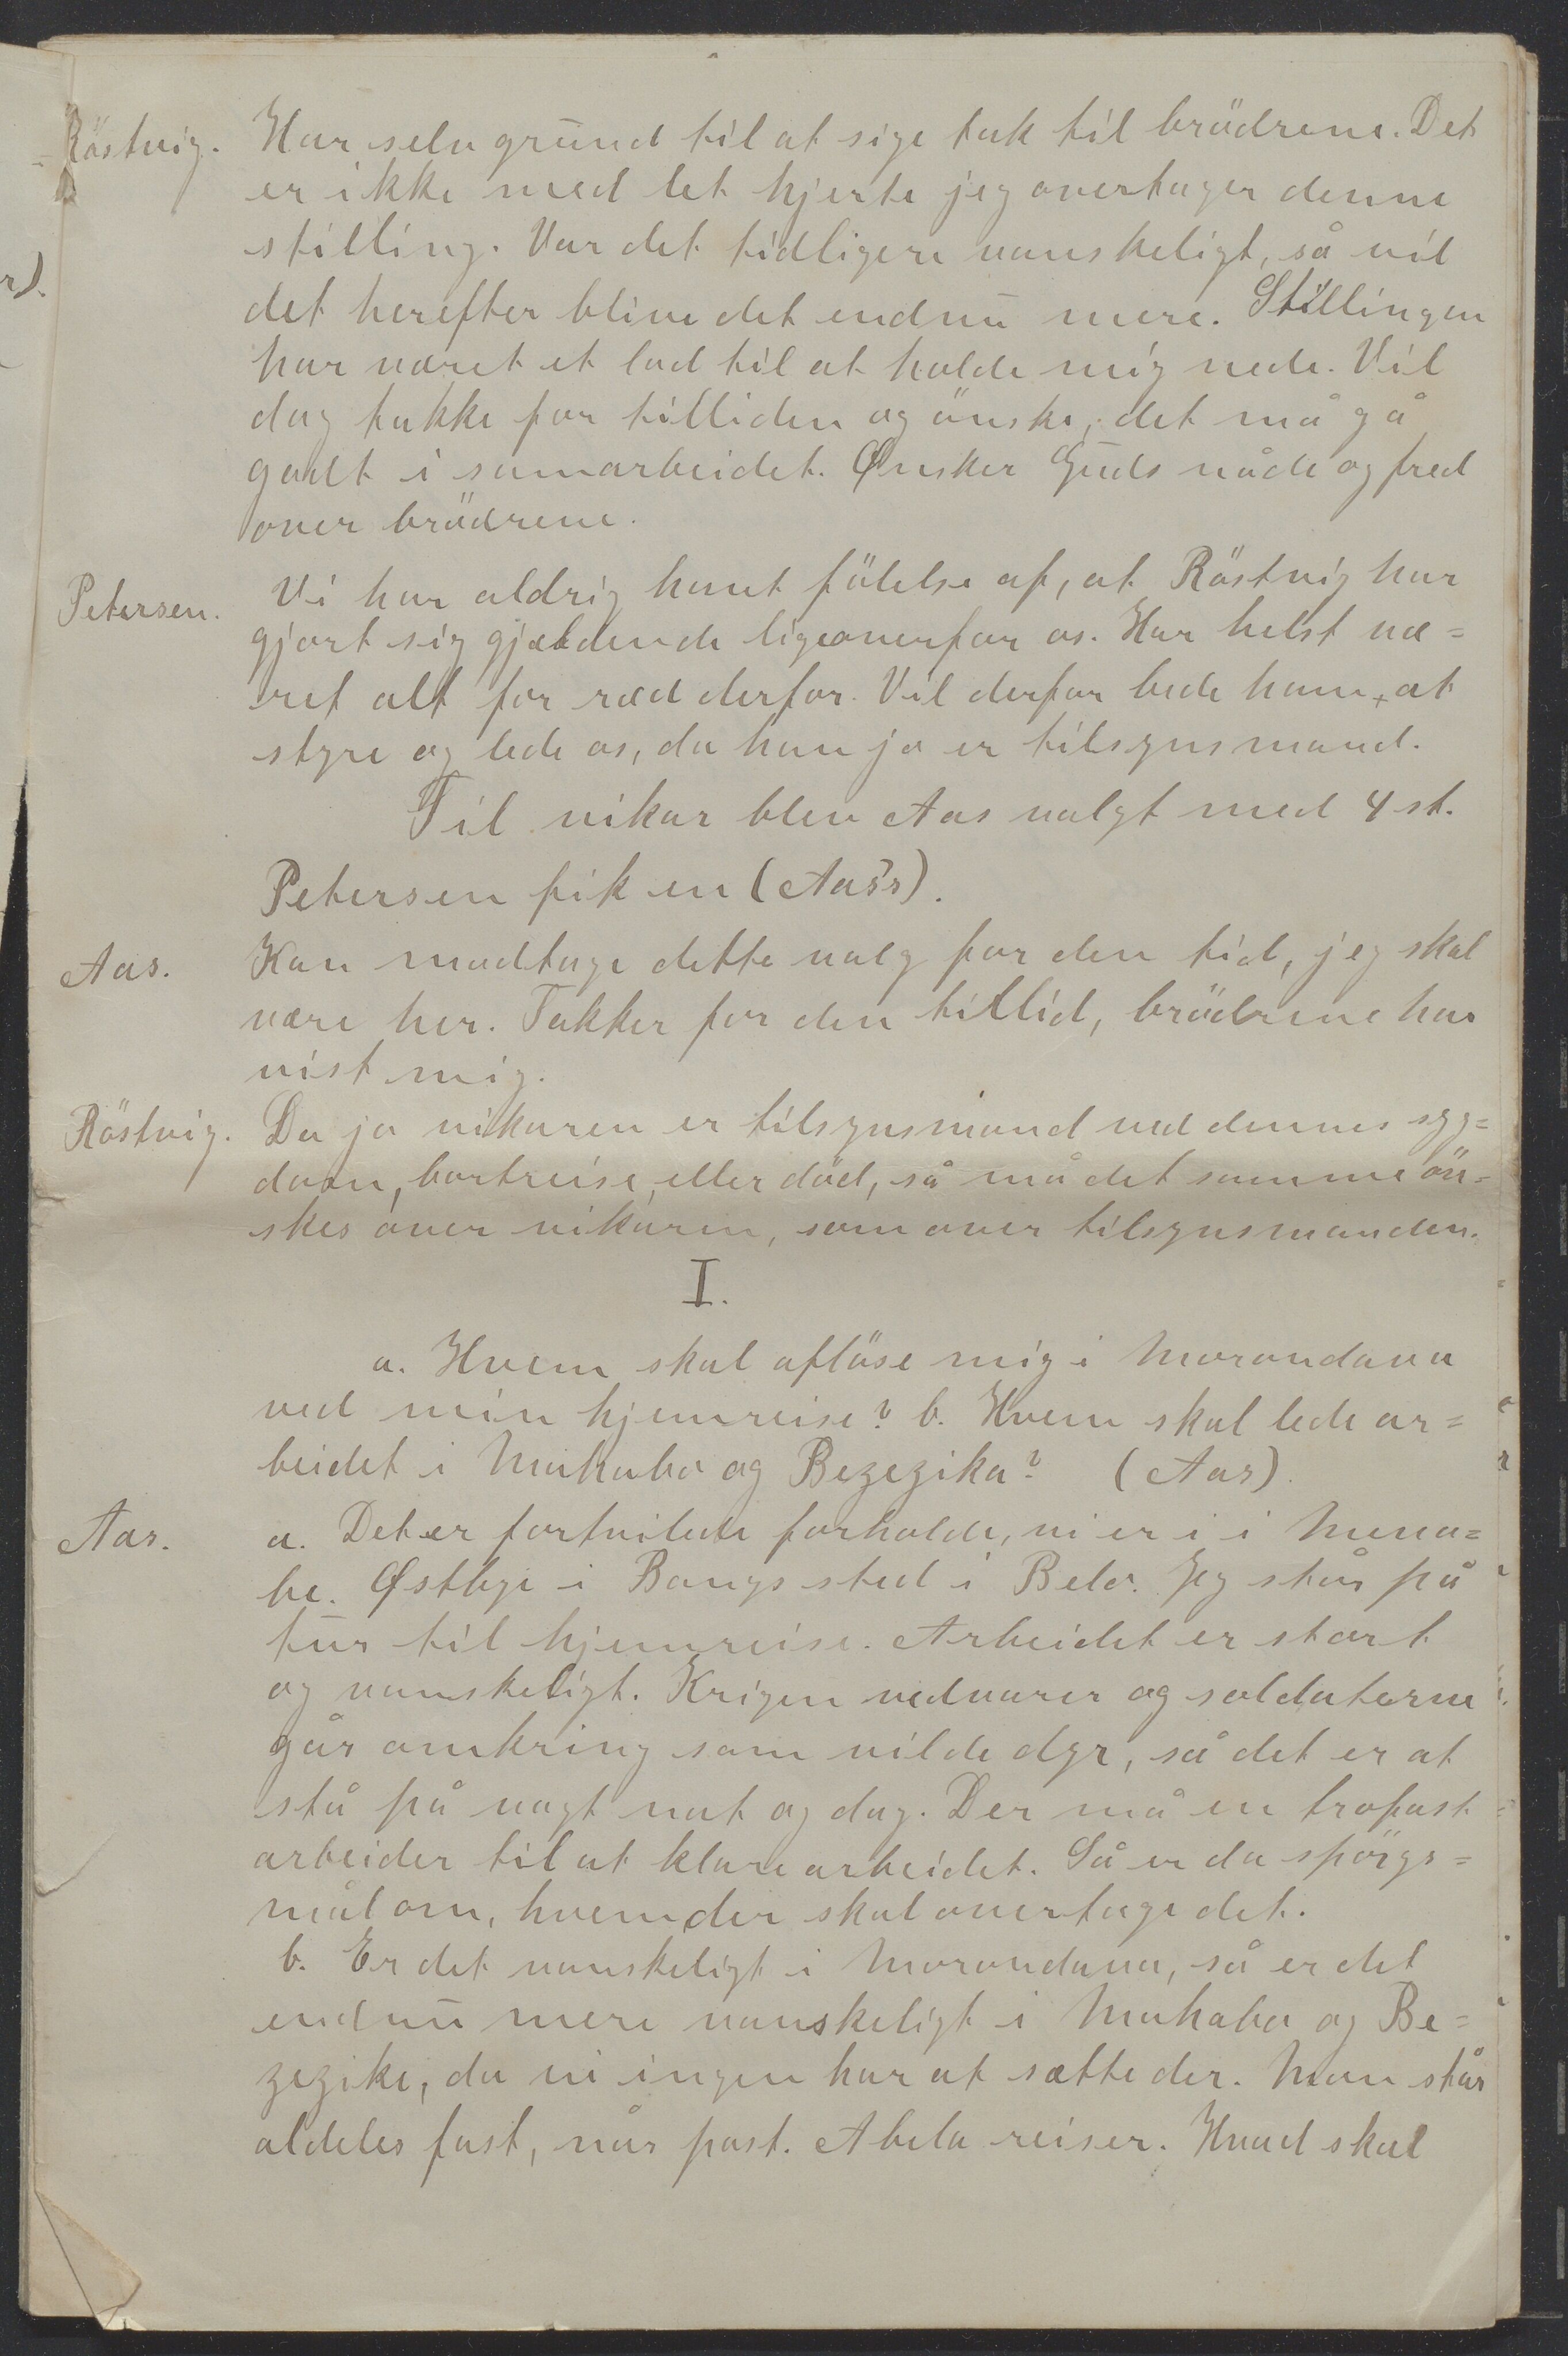 Röstvig. Har selv grund til at sige tak til brödrene. Det
er ikke med let hjerte jeg overtager denne
stilling. Var det tidligere vanskeligt, så vil
det herefter blive det endnu mere. Stillingen
har været et lod til at holde mig nede. Vil
dog takke for tilliden og önske, det må gå
godt i samarbeidet. Ønsker Guds nåde og fred
over brödrene.
Petersen. Vi har aldrig havt fölelse af, at Röstvig har
gjort sig gjældende ligeoverfor os. Har helst væ=
ret alt for ræd derfor. Vil derfor bede ham, at
styre og lede os, da han jo er tilsynsmand.
Til vikar blev Aas valgt med 4 st.
Petersen fik en (Aas's).
Aas. Kan modtage dette valg for den tid, jeg skal
være her. Takker for den tillid, brödrene har
vist mig.
Röstvig. Da jo vikaren er tilsynsmand ved dennes syg=
dom, bortreise, eller död, så må det samme ön=
skes over vikaren, som over tilsynsmanden.
I.
a. Hvem skal aflöse mig i Morondava
ved min hjemreise? b. Hvem skal lede ar=
beidet i Mahabo og Bezezika? (Aas).
Aas. a. Det er fortvilede forholde, vi er i i Mena=
be. Østbye i Bangs sted i Belo. Jeg står på
tur til hjemreise. Arbeidet er stort
og vanskeligt. Krigen vedvarer og soldaterne
går omkring som vilde dyr, så det er at
stå på vagt nat og dag. Der må en trofast
arbeider til at klare arbeidet. Så er da spörgs=
mål om, hvem der skal overtage det.
b. Er det vanskeligt i Morondava, så er det
endnu mere vanskeligt i Mahabo og Be=
zezike, da vi ingen har at sætte der. Man står
aldeles fast, når past. Abela reiser. Hvad skal